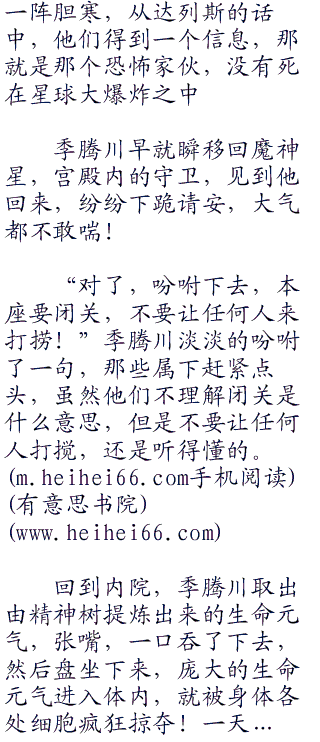 一阵胆寒，从达列斯的话
中，他们得到一个信息，那
就是那个恐怖家伙，没有死
在星球大爆炸之中
季腾川早就瞬移回魔神
星，宫殿内的守卫，见到他
回来，纷纷下跪请安，大气
都不敢喘！
“对了，吩咐下去，本
座要闭关，不要让任何人来
打捞！”季腾川淡淡的吩咐
了一句，那些属下赶紧点
头，虽然他们不理解闭关是
什么意思，但是不要让任何
人打搅，还是听得懂的。
(m.heihei66.com手机阅读)
(有意思书院)
(www.heihei66.com)
回到内院，季腾川取出
由精神树提炼出来的生命元
气，张嘴，一口吞了下去，
然后盘坐下来，庞大的生命
元气进入体内，就被身体各
处细胞疯狂掠夺！一天…